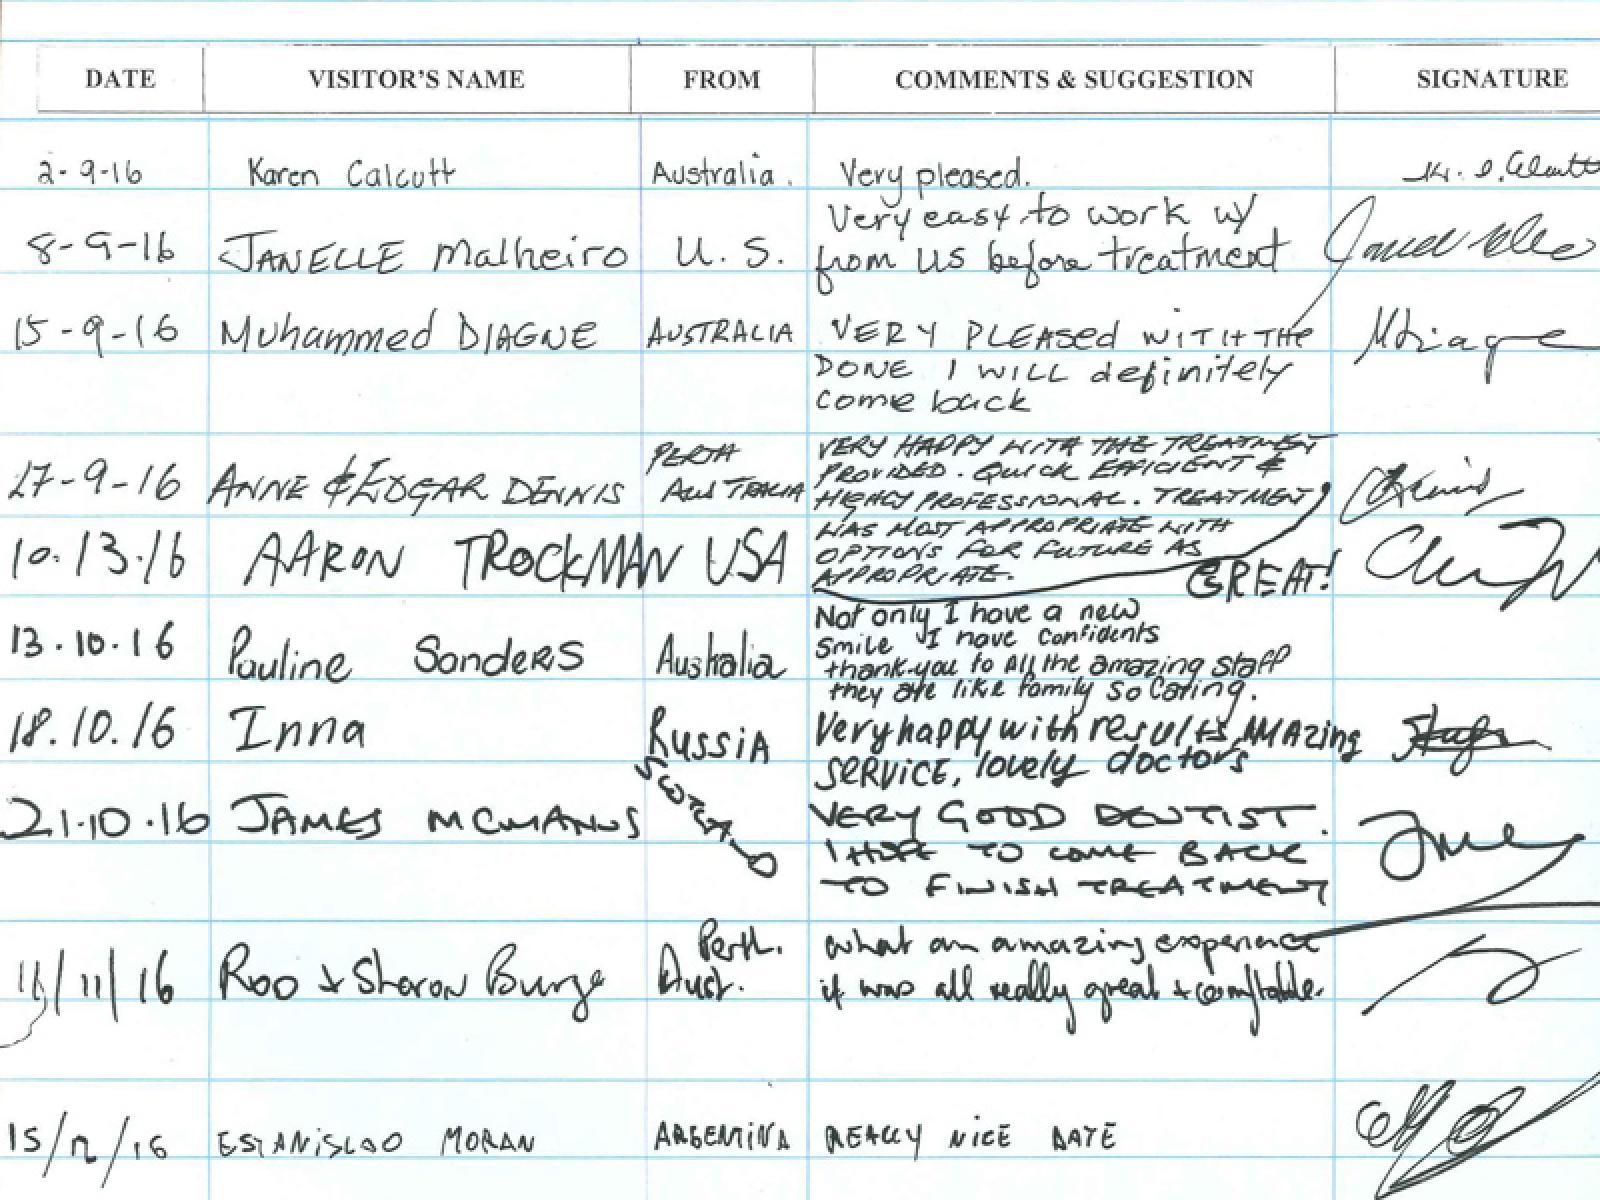 DATE VISITOR'S NAME FROM COMMENTS & SUGGESTION SIGNATURE
2-9-16 Karen Calcutt Australia. Very pleased.
8-9-16 JANELLE Malheiro U.S. Very easy to work w/
from US before treatment
15-9-16 Muhammed DIAGNE AUSTRALIA VERY PLEASED WITH THE
DONE I WILL definitely
come back
27-9-16 ANNE & EDGAR DENNIS PERTH
AUSTRALIA
VERY HAPPY WITH THE TREATMENT
PROVIDED. QUICK EFFICIENT &
HIGHLY PROFESSIONAL. TREATMENT
WAS MOST APPROPRIATE WITH
OPTIONS FOR FUTURE AS
APPROPRIATE.
10.13.16 AARON TROCKMAN USA GREAT!
13.10.16 Pauline Sanders Australia Not only I have a new
smile I have confidents
thank-you to All the amazing staff
they are like family so caring.
18.10.16 Inna RUSSIA Very happy with results, AMAzing
SERVICE, lovely doctors
21.10.16 JAMES MCMANUS SCOTLAND VERY GOOD DENTIST.
I HOPE TO COME BACK
TO FINISH TREATMENT
11/11/16 Roo + Sharon Burge Perth.
Aust.
what an amazing experience
it was all really great + comftable.
15/12/16 ESTANISLAO MORAN ARGENTINA REALLY NICE DATE